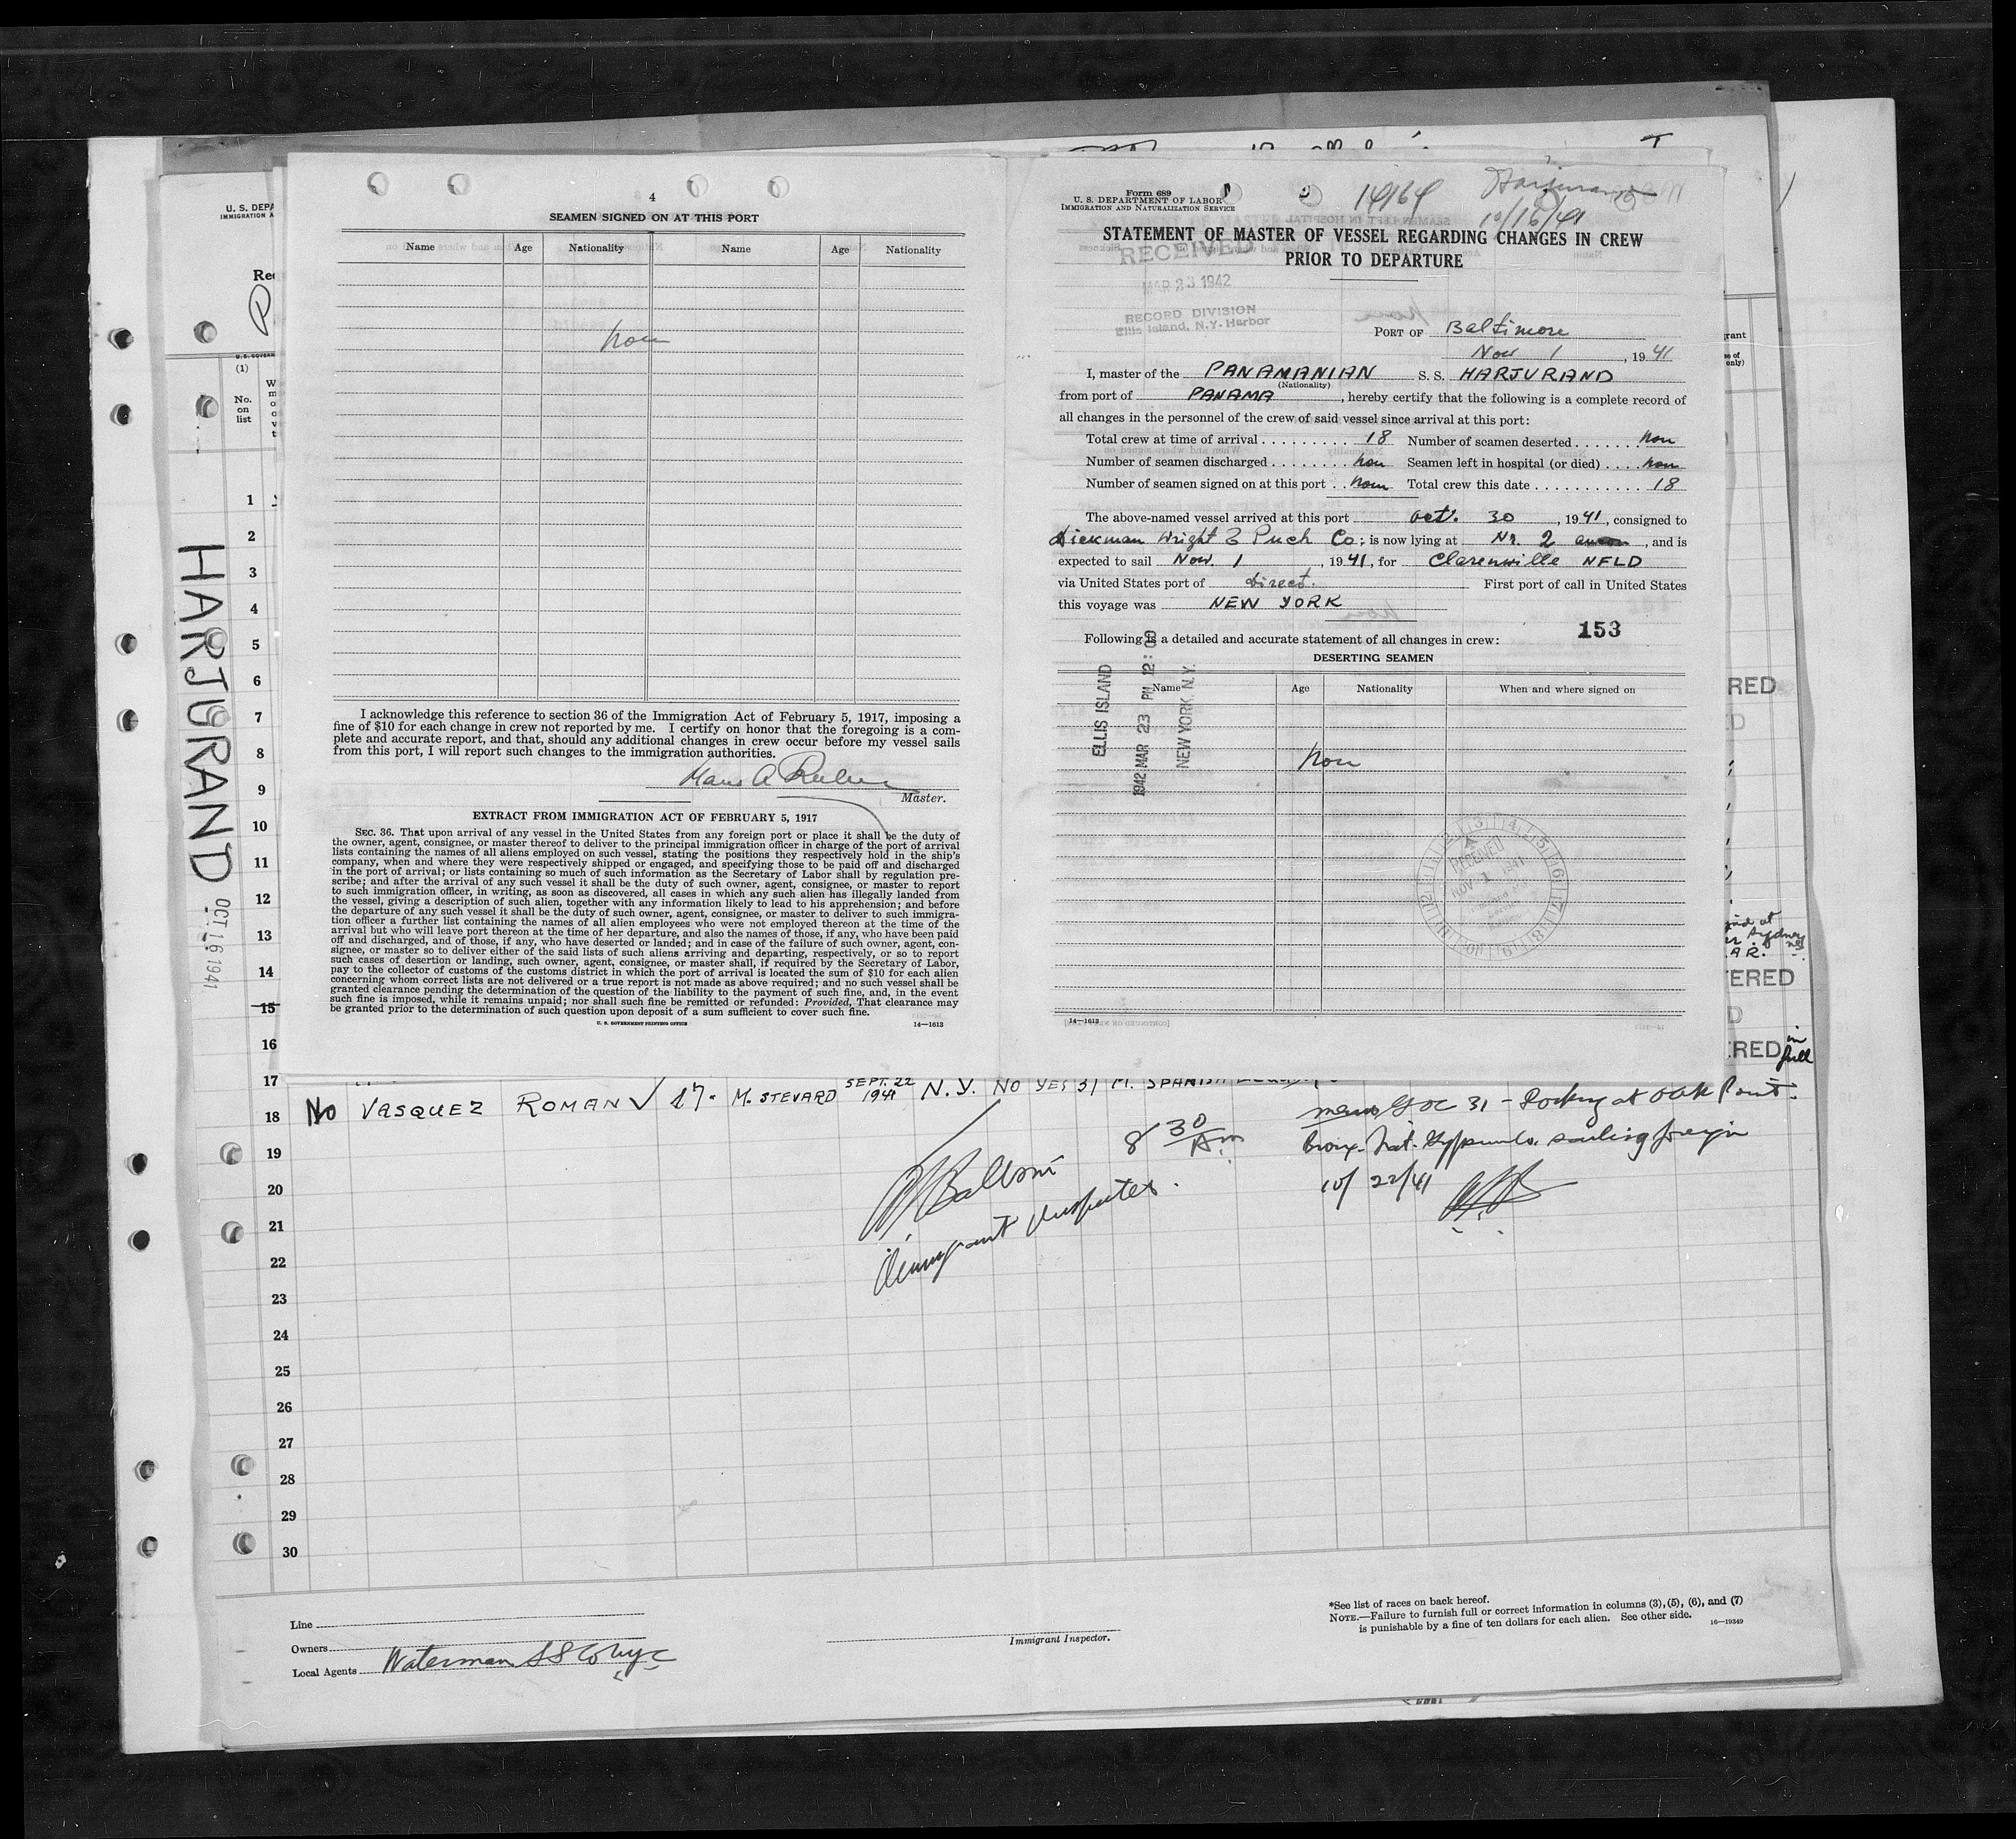 4
SEAMEN SIGNED ON AT THIS PORT
Name Age Nationality Name Age Nationality
I acknowledge this reference to section 36 of the Immigration Act of February 5, 1917, imposing a
fine of $10 for each change in crew not reported by me. I certify on honor that the foregoing is a com-
plete and accurate report, and that, should any additional changes in crew occur before my vessel sails
from this port, I will report such changes to the immigration authorities.
Master.
EXTRACT FROM IMMIGRATION ACT OF FEBRUARY 5, 1917
SEC. 36. That upon arrival of any vessel in the United States from any foreign port or place it shall be the duty of
the owner, agent, consignee, or master thereof to deliver to the principal immigration officer in charge of the port of arrival
lists containing the names of all aliens employed on such vessel, stating the positions they respectively hold in the ship's
company, when and where they were respectively shipped or engaged, and specifying those to be paid off and discharged
in the port of arrival; or lists containing so much of such information as the Secretary of Labor shall by regulation pre-
scribe; and after the arrival of any such vessel it shall be the duty of such owner, agent, consignee, or master to report
to such immigration officer, in writing, as soon as discovered, all cases in which any such alien has illegally landed from
the vessel, giving a description of such alien, together with any information likely to lead to his apprehension; and before
the departure of any such vessel it shall be the duty of such owner, agent, consignee, or master to deliver to such immigra-
tion officer a further list containing the names of all alien employees who were not employed thereon at the time of the
arrival but who will leave port thereon at the time of her departure, and also the names of those, if any, who have been paid
off and discharged, and of those, if any, who have deserted or landed; and in case of the failure of such owner, agent, con-
signee, or master so to deliver either of the said lists of such aliens arriving and departing, respectively, or so to report
such cases of desertion or landing, such owner, agent, consignee, or master shall, if required by the Secretary of Labor,
pay to the collector of customs of the customs district in which the port of arrival is located the sum of $10 for each alien
concerning whom correct lists are not delivered or a true report is not made as above required; and no such vessel shall be
granted clearance pending the determination of the question of the liability to the payment of such fine, and, in the event
such fine is imposed, while it remains unpaid; nor shall such fine be remitted or refunded: Provided, That clearance may
be granted prior to the determination of such question upon deposit of a sum sufficient to cover such fine.
U. S. GOVERNMENT PRINTING OFFICE 14—1613
Form 689
U. S. DEPARTMENT OF LABOR
IMMIGRATION AND NATURALIZATION SERVICE
14164
10/16/41
STATEMENT OF MASTER OF VESSEL REGARDING CHANGES IN CREW
PRIOR TO DEPARTURE
RECEIVED
MAR 23 1942
RECORD DIVISION
Ellis Island, N.Y. Harbor
PORT OF Baltimore
Nov 1, 1941
I, master of the PANAMANIAN S. S. HARJURAND
(Nationality)
from port of PANAMA, hereby certify that the following is a complete record of
all changes in the personnel of the crew of said vessel since arrival at this port:
Total crew at time of arrival 18 Number of seamen deserted non
Number of seamen discharged non Seamen left in hospital (or died) non
Number of seamen signed on at this port non Total crew this date 18
The above-named vessel arrived at this port Oct. 30, 1941, consigned to
Wright & Co; is now lying at Nr. 2, and is
expected to sail Nov. 1, 1941, for Clarenville NFLD
via United States port of Direct. First port of call in United States
this voyage was NEW YORK
153
Following is a detailed and accurate statement of all changes in crew:
DESERTING SEAMEN
Name Age Nationality When and where signed on
non
ELLIS ISLAND
1942 MAR 23 PM 12:00
NEW YORK, N.Y.
RECEIVED
NOV 1 1941
14—1613
U. S. DEPA
IMMIGRATION A
(1)
No.
on
list
HARJURAND
OCT 16 1941
1
2
3
4
5
6
7
8
9
10
11
12
13
14
15
16
17
18 No VASQUEZ ROMAN 17. M. STEVARD SEPT. 22 1941 N.Y. NO YES 31 M. SPANISH
19
20
21
22
23
24
25
26
27
28
29
30
8 30 Am
10/22/41
RED
ERED
RED in full
Line
Owners
Local Agents Waterman SS Co NYC
Immigrant Inspector.
*See list of races on back hereof.
NOTE.—Failure to furnish full or correct information in columns (3), (5), (6), and (7)
is punishable by a fine of ten dollars for each alien. See other side. 16—19349